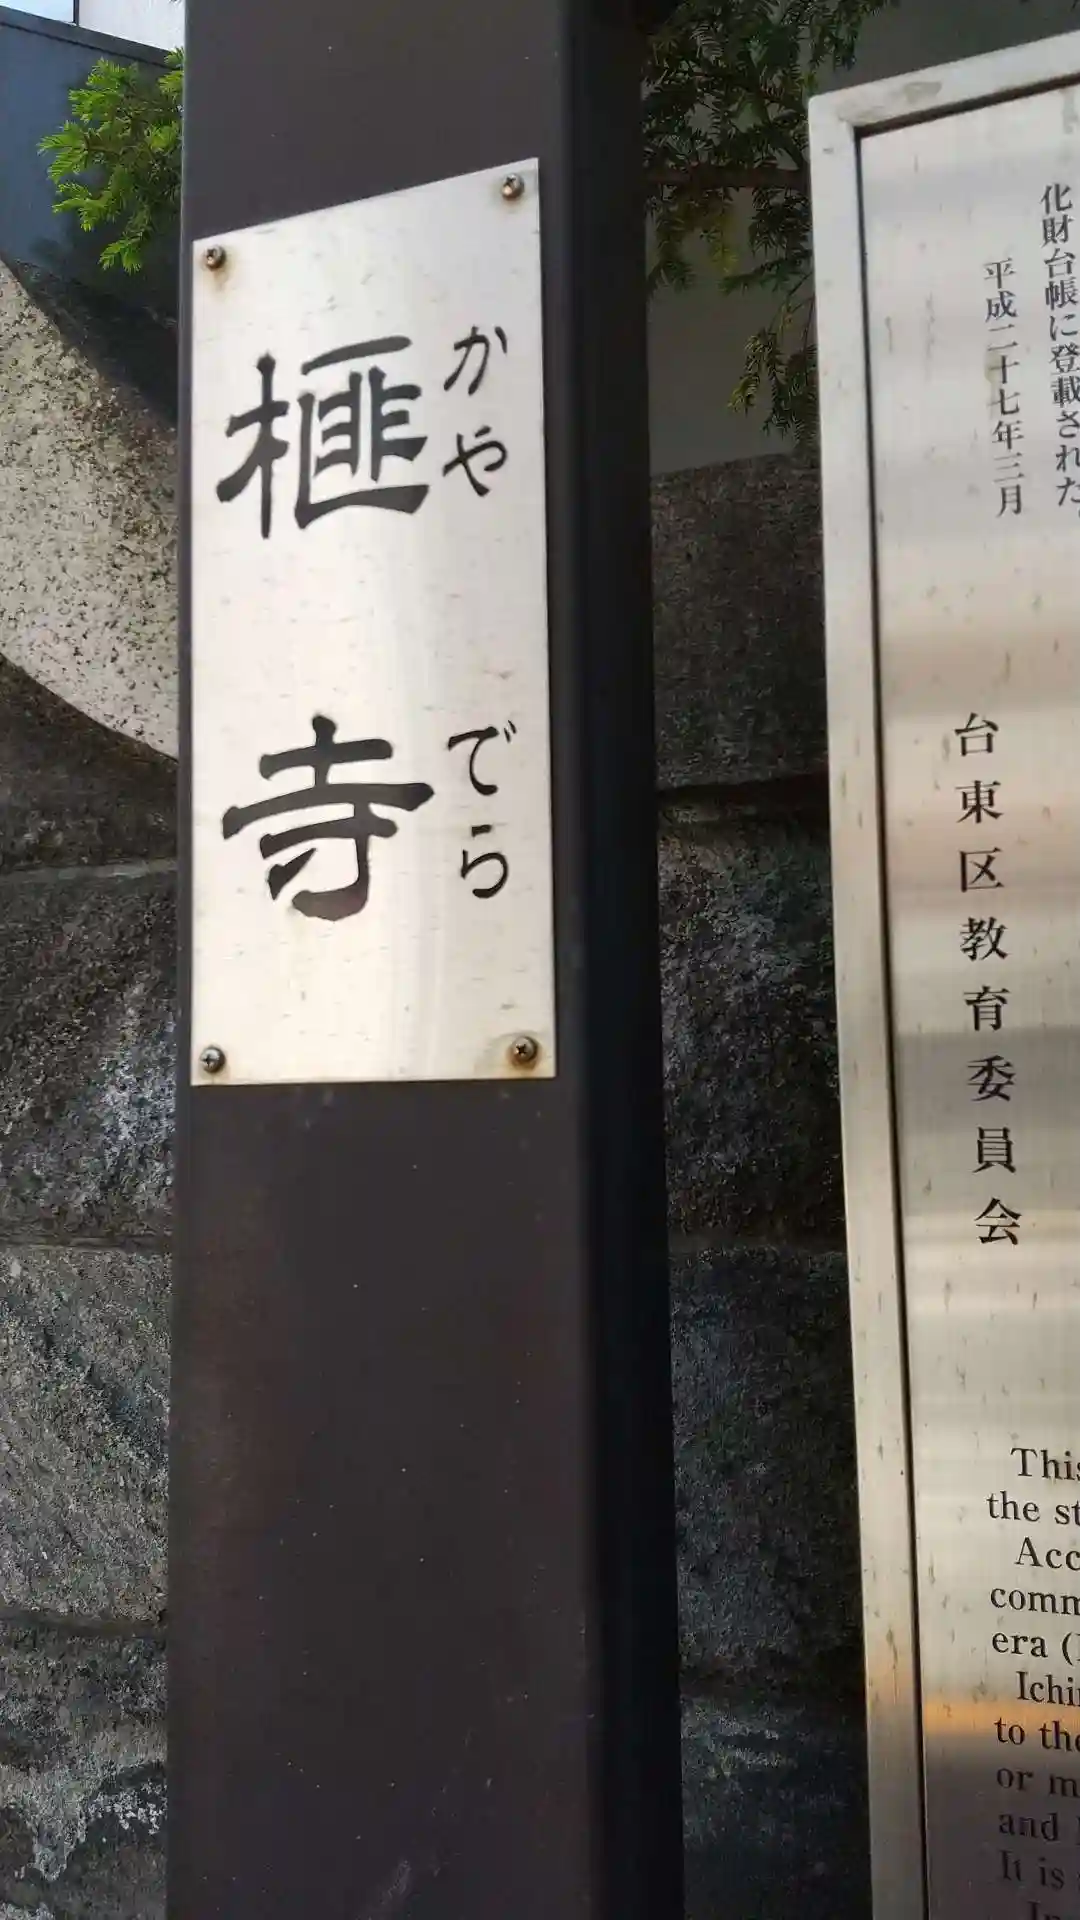 榧寺
かやでら
化財台帳に登載された
平成二十七年三月
台東区教育委員会
This
the st
Acc
comm
era (
Ichi
to the
or m
and
It is